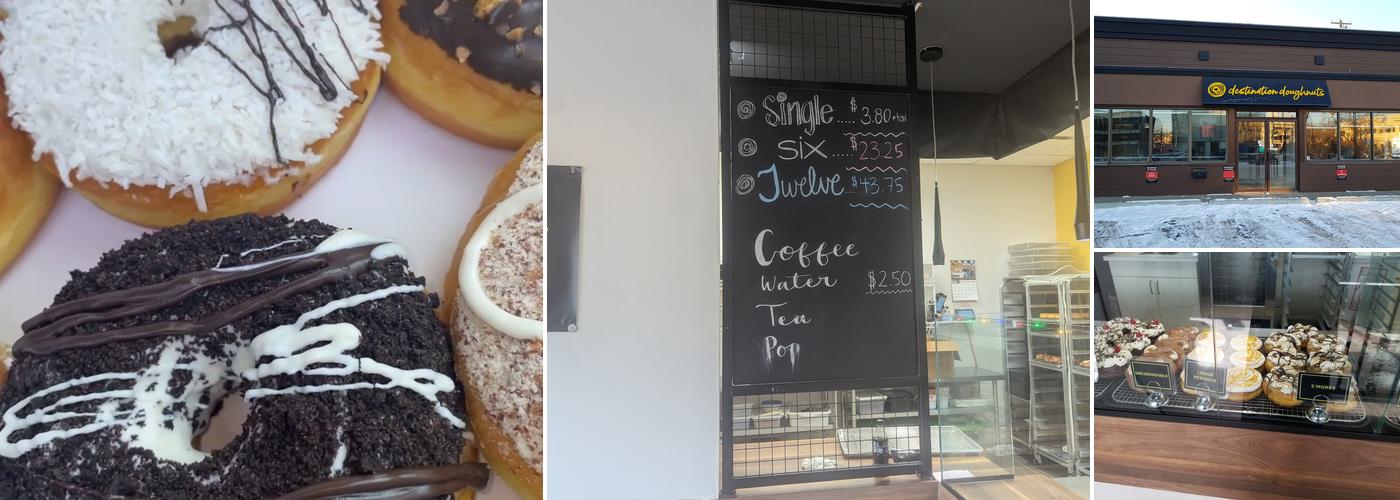 Single ..... $3.80 + tax
six ..... $23.25
Twelve ... $43.75
Coffee
Water $2.50
Tea
Pop
destination doughnuts
SNICKERDOODLE
LEMON MERINGUE
S'MORES